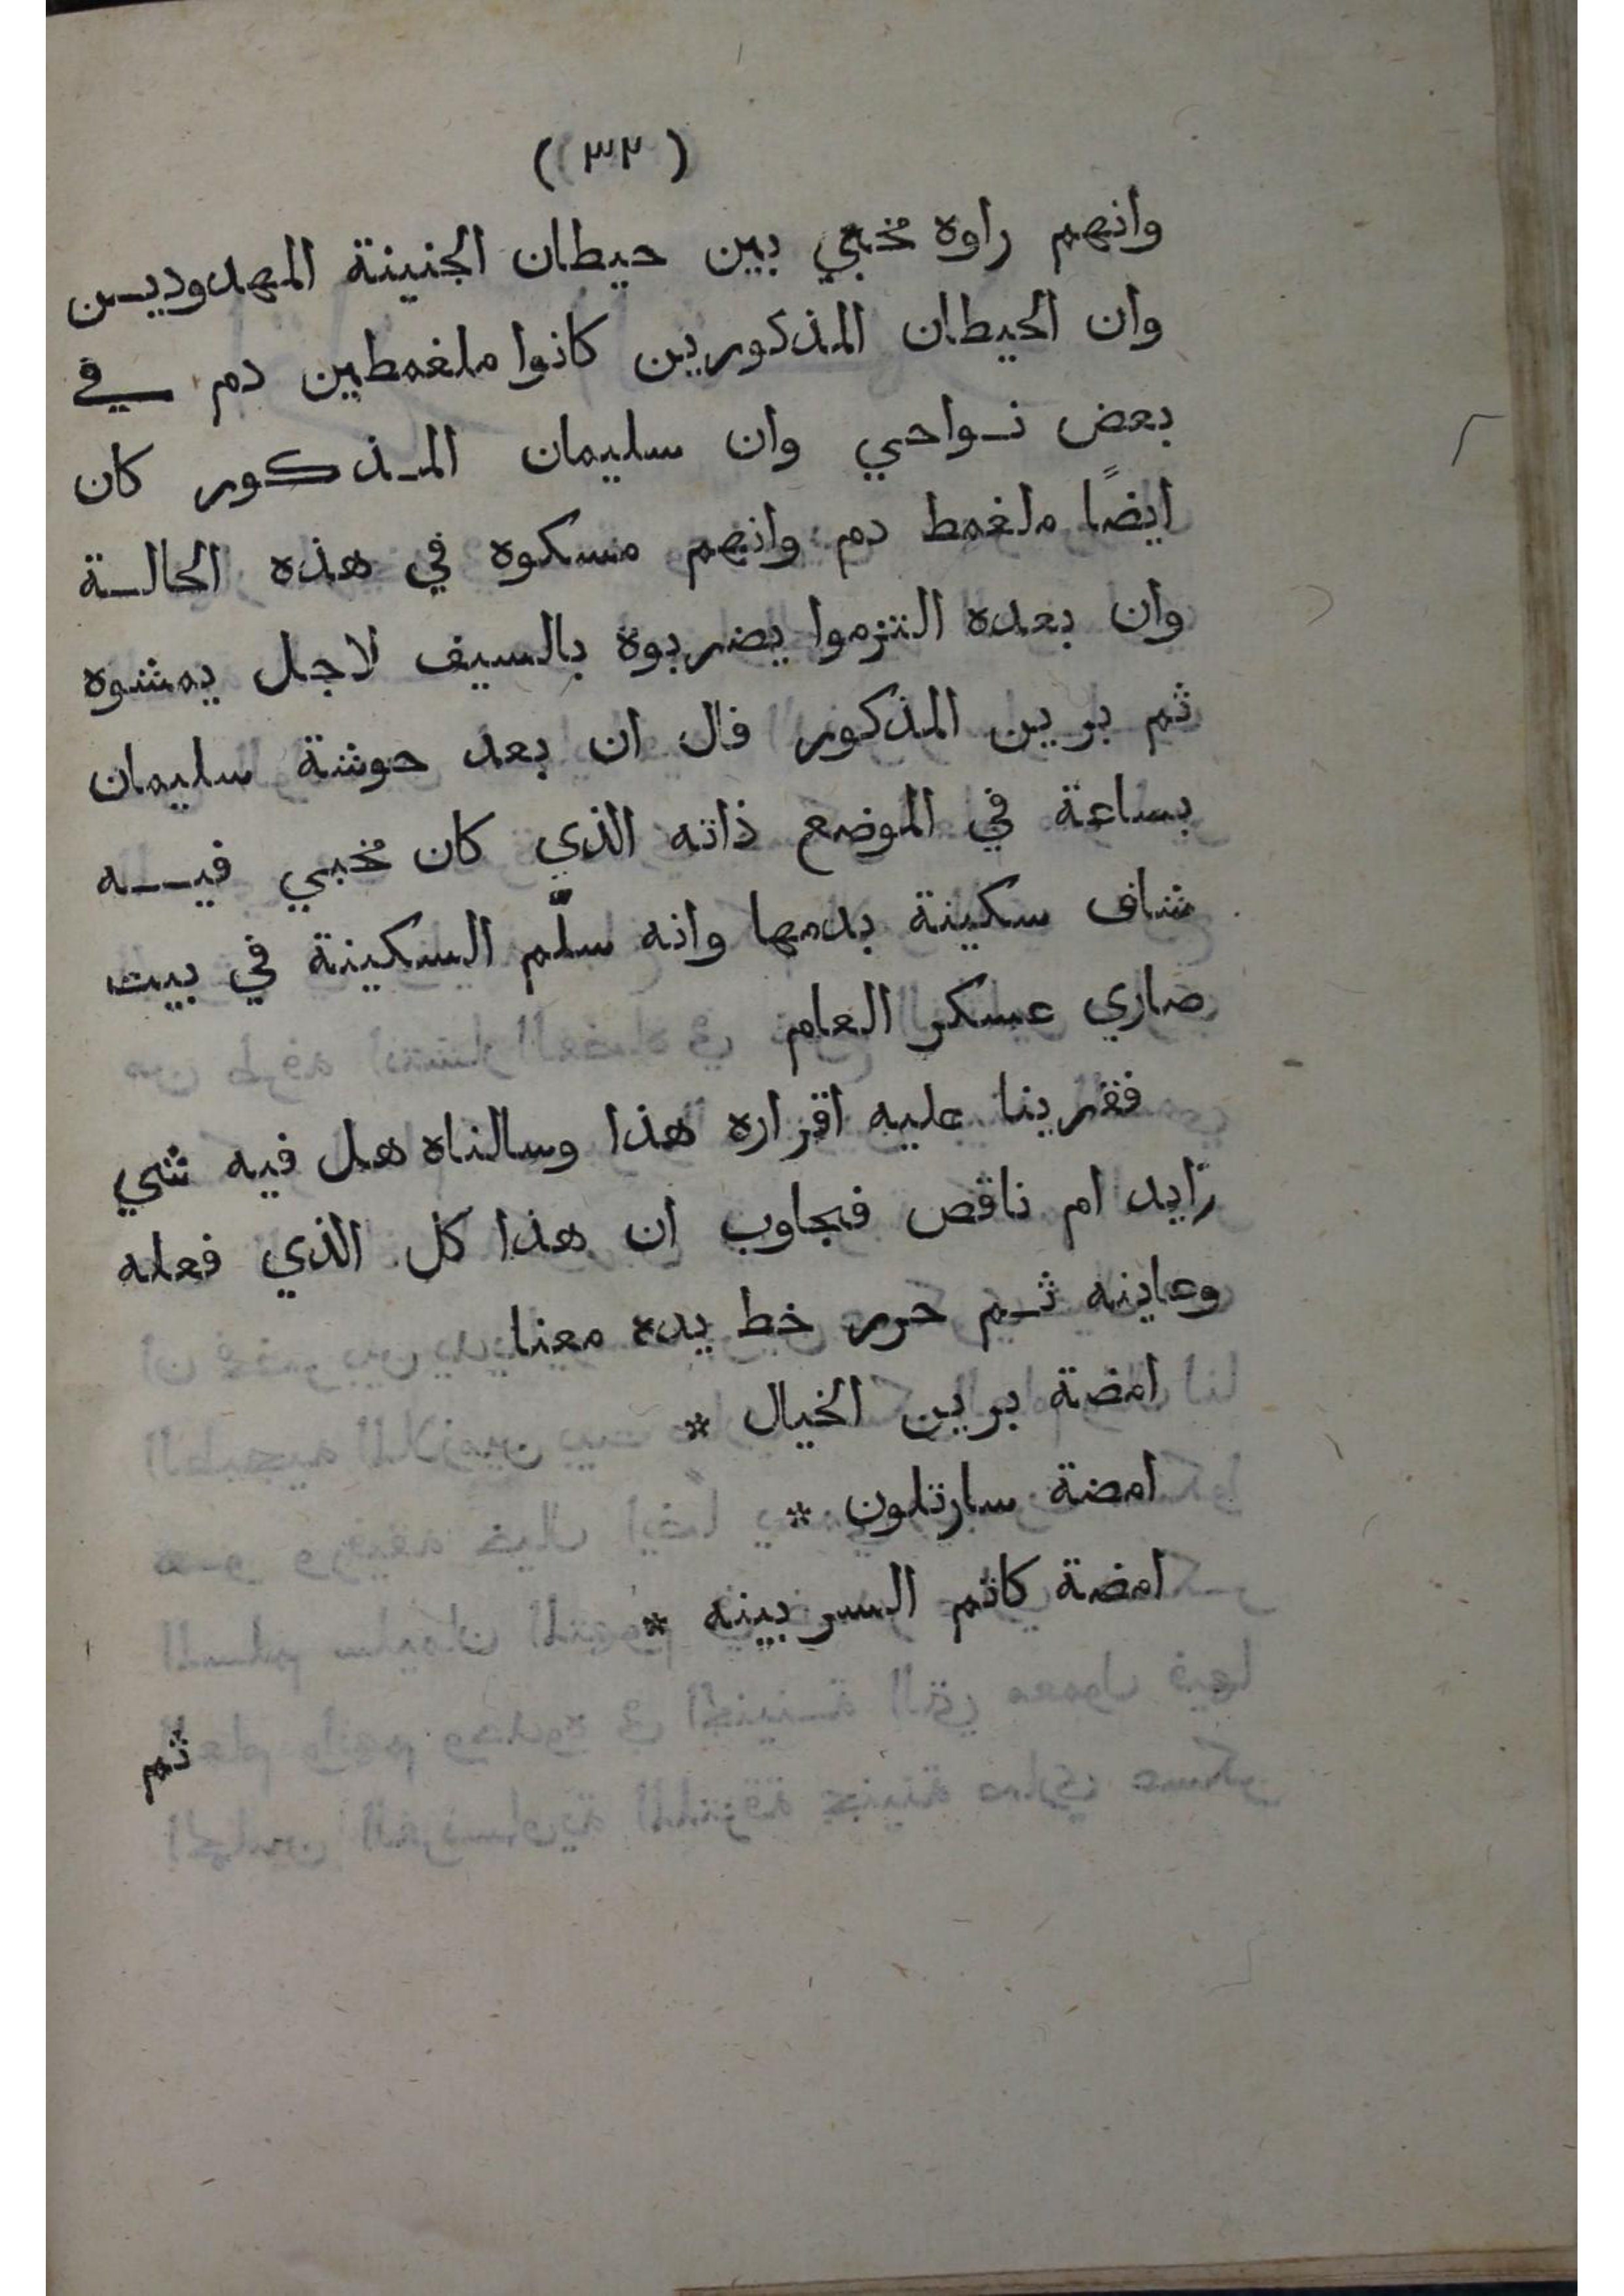 ( ٣٢ )
وانهم راوه مخبي بين حيطان الجنينة المهدوديـن
وان الحيطان المذكورين كانوا ملغمطين دم في
بعض نـواحي وان سليمان المـذكور كان
ايضًا ملغمط دم وانهم مسكوه في هذه الحالـة
وان بعده التزموا يضربوه بالسيف لاجل يمشوه
ثم برين المذكور قال ان بعد حوشة سليمان
بساعة في الموضع ذاته الذي كان مخبي فيــه
شاف سكينة بدمها وانه سلّم السكينة في بيت
صاري عسكر العام
فقرينا عليه اقراره هذا وسالناه هل فيه شي
زايد ام ناقص فجاوب ان هذا كل الذي فعله
وعاينه ثـم حرر خط يده معنا
امضة برين الخيال *
امضة سارتلون *
امضة كاتم السر بينه *
ثم